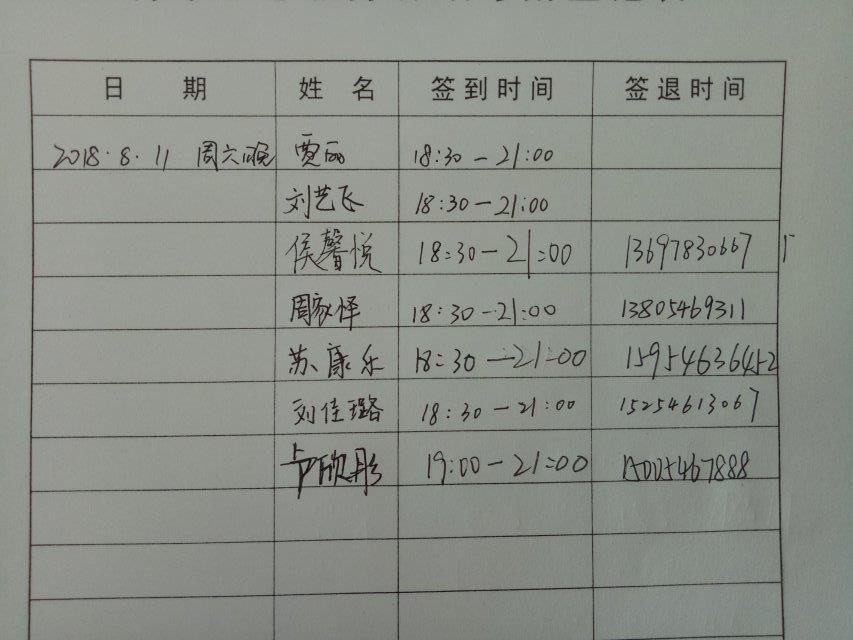 日 期 姓 名 签到时间 签退时间
2018.8.11 周六晚 贾丽 18:30-21:00
刘艺飞 18:30-21:00
侯馨悦 18:30-21:00 13697830667
周家怿 18:30-21:00 13805469311
苏康乐 18:30-21:00 15954636452
刘佳璐 18:30-21:00 15254613067
卢欣彤 19:00-21:00 15005467888